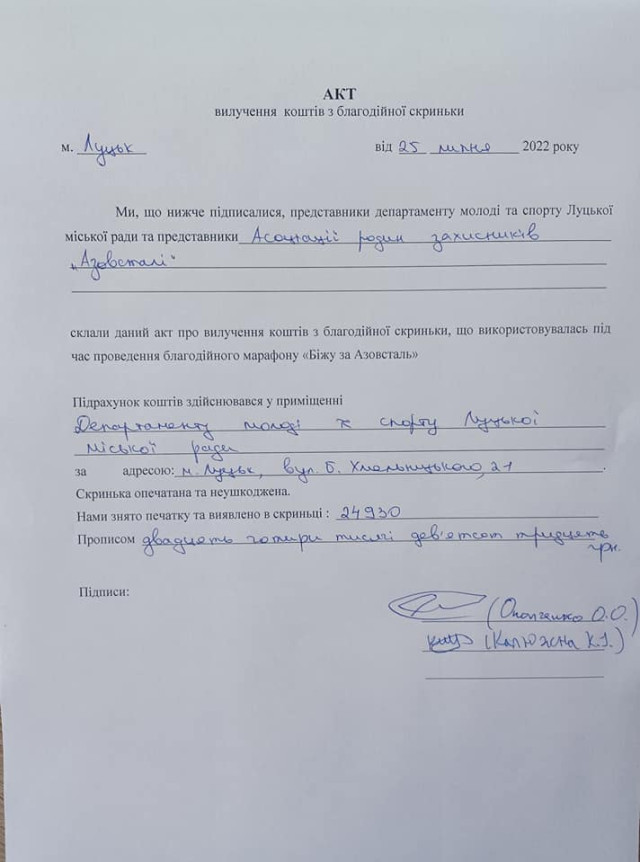 АКТ
вилучення коштів з благодійної скриньки
м. Луцьк від 25 липня 2022 року
Ми, що нижче підписалися, представники департаменту молоді та спорту Луцької
міської ради та представники Асоціації родин захисників
„Азовсталі“
склали даний акт про вилучення коштів з благодійної скриньки, що використовувалась під
час проведення благодійного марафону «Біжу за Азовсталь»
Підрахунок коштів здійснювався у приміщенні
Департаменту молоді та спорту Луцької
міської ради
за адресою: м. Луцьк, вул. Б. Хмельницького, 21.
Скринька опечатана та неушкоджена.
Нами знято печатку та виявлено в скриньці : 24930
Прописом двадцять чотири тисячі дев'ятсот тридцять
грн.
Підписи:
О.О.)
(Калюжна К.І.)